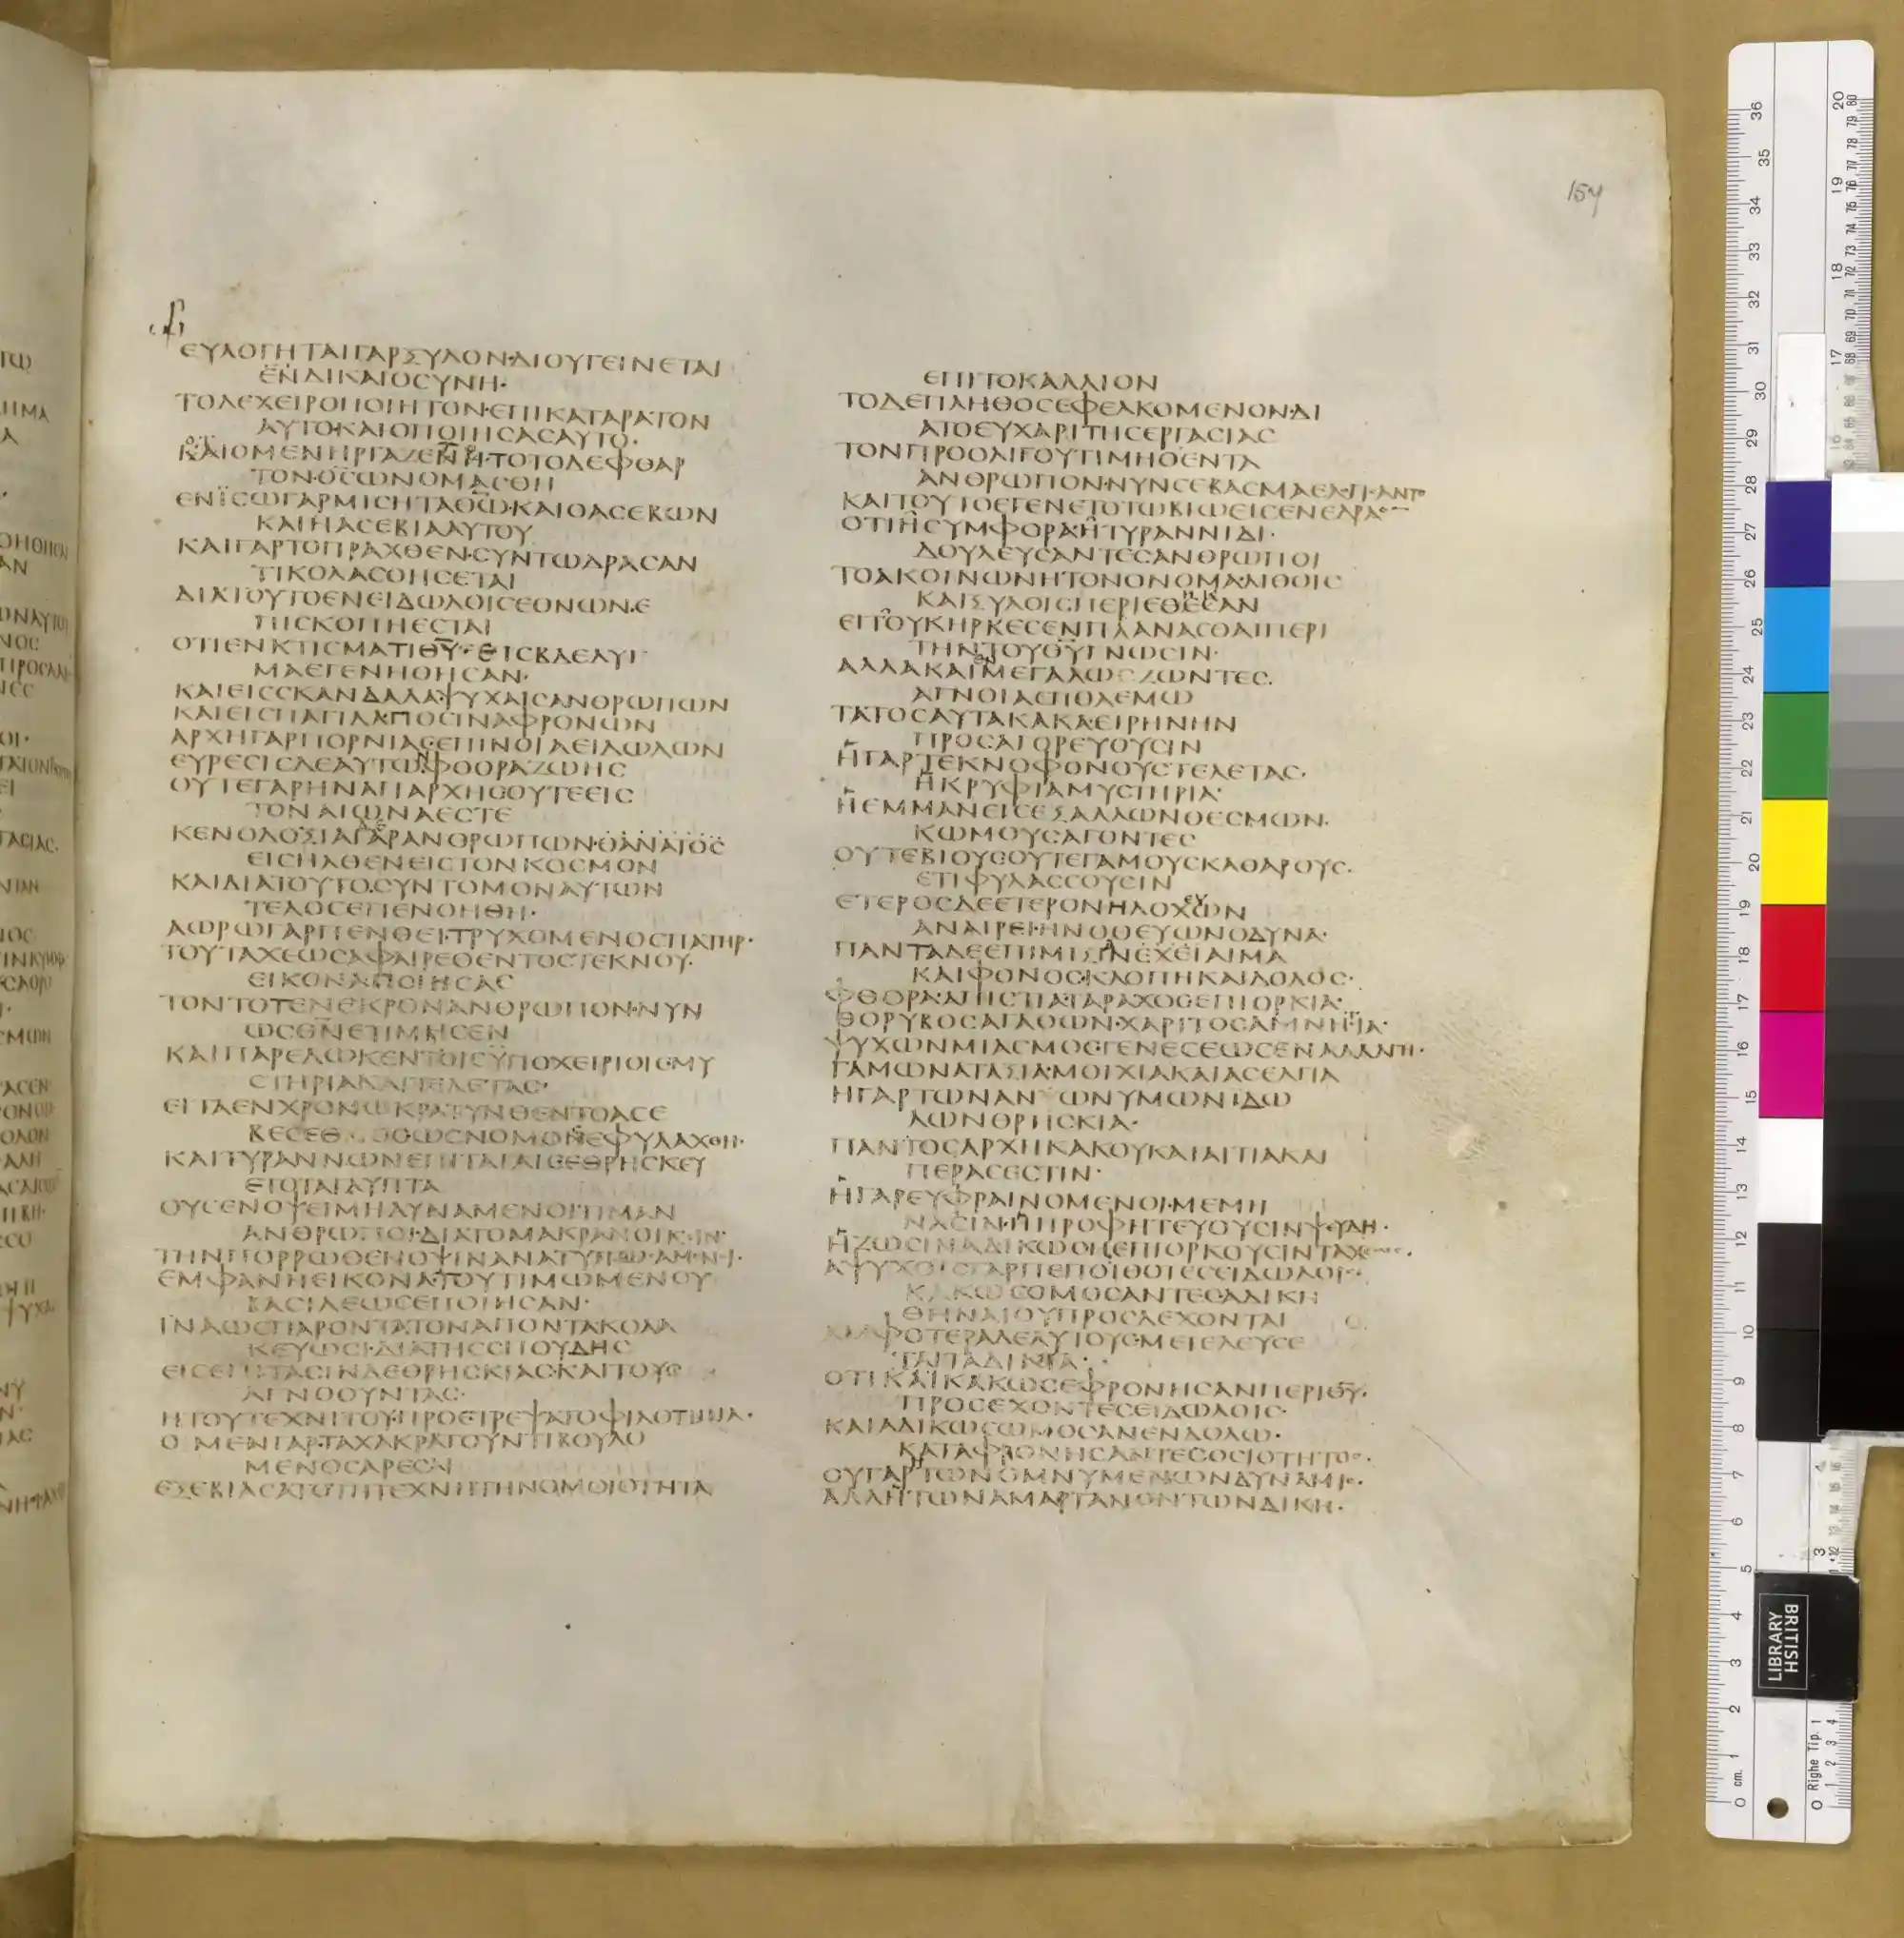 154
ΕΥΛΟΓΗΤΑΙΓΑΡΞΥΛΟΝ·ΔΙΟΥΓΕΙΝΕΤΑΙ
ΕΝΔΙΚΑΙΟCΥΝΗ·
ΤΟΔΕΧΕΙΡΟΠΟΙΗΤΟΝ·ΕΠΙΚΑΤΑΡΑΤΟΝ
ΑΥΤΟ·ΚΑΙΟΠΟΙΗCΑCΑΥΤΟ·
ΚΑΙΟΜΕΝΗΡΓΑΖΕΝΗ·ΤΟΤΟΔΕΦΘΑΡ
ΤΟΝ·ΟC̅ΩΝΟΜΑCΘΗ
ΕΝΪCΩΓΑΡΜΙCΗΤΑΘ̅Ω̅·ΚΑΙΟΑCΕΒΩΝ
ΚΑΙΗΑCΕΒΙΑΑΥΤΟΥ
ΚΑΙΓΑΡΤΟΠΡΑΧΘΕΝ·CΥΝΤΩΔΡΑCΑΝ
ΤΙΚΟΛΑCΘΗCΕΤΑΙ
ΔΙΑΤΟΥΤΟΕΝΕΙΔΩΛΟΙCΕΘΝΩΝ·Ε
ΠΙCΚΟΠΗΕCΤΑΙ
ΟΤΙΕΝΚΤΙCΜΑΤΙΘ̅Υ̅·ΕΙCΒΔΕΛΥΓ
ΜΑΕΓΕΝΗΘΗCΑΝ·
ΚΑΙΕΙCCΚΑΝΔΑΛΑ·ΨΥΧΑΙCΑΝΘΡΩΠΩΝ
ΚΑΙΕΙCΠΑΓΙΔΑ·ΠΟCΙΝΑΦΡΟΝΩΝ
ΑΡΧΗΓΑΡΠΟΡΝΙΑC·ΕΠΙΝΟΙΑΕΙΔΩΛΩΝ
ΕΥΡΕCΙCΔΕΑΥΤΩΝΦΘΟΡΑΖΩΗC
ΟΥΤΕΓΑΡΗΝΑΠΑΡΧΗCΟΥΤΕΕΙC
ΤΟΝΑΙΩΝΑΕCΤΕ
ΚΕΝΟΔΟΞΙΑΓΑΡΑΝΘΡΩΠΩΝ·ΘΑΝΑΤΟC
ΕΙCΗΛΘΕΝΕΙCΤΟΝΚΟCΜΟΝ
ΚΑΙΔΙΑΤΟΥΤΟ·CΥΝΤΟΜΟΝΑΥΤΩΝ
ΤΕΛΟCΕΠΕΝΟΗΘΗ·
ΑΩΡΩΓΑΡΠΕΝΘΕΙ·ΤΡΥΧΟΜΕΝΟCΠΑΤΗΡ·
ΤΟΥΤΑΧΕΩCΑΦΑΙΡΕΘΕΝΤΟCΤΕΚΝΟΥ·
ΕΙΚΟΝΑΠΟΙΗCΑC
ΤΟΝΤΟΤΕΝΕΚΡΟΝΑΝΘΡΩΠΟΝ·ΝΥΝ
ΩCΘ̅Ν̅ΕΤΙΜΗCΕΝ
ΚΑΙΠΑΡΕΔΩΚΕΝΤΟΙCΫΠΟΧΕΙΡΙΟΙC·ΜΥ
CΤΗΡΙΑΚΑΙΤΕΛΕΤΑC·
ΕΙΤΑΕΝΧΡΟΝΩΚΡΑΤΥΝΘΕΝΤΟΑCΕ
ΒΕCΕΘΟCΩCΝΟΜΟΝΕΦΥΛΑΧΘΗ·
ΚΑΙΤΥΡΑΝΝΩΝΕΠΙΤΑΓΑΙCΕΘΡΗCΚΕΥ
ΕΤΟΤΑΓΛΥΠΤΑ
ΟΥCΕΝΟΨΕΙΜΗΔΥΝΑΜΕΝΟΙΤΙΜΑΝ
ΑΝΘΡΩΠΟΙ·ΔΙΑΤΟΜΑΚΡΑΝΟΙΚΙΝ·
ΤΗΝΠΟΡΡΩΘΕΝΟΨΙΝΑΝΑΤΥΠΩCΑΜΕΝΟΙ·
ΕΜΦΑΝΗΕΙΚΟΝΑ·ΤΟΥΤΙΜΩΜΕΝΟΥ
ΒΑCΙΛΕΩCΕΠΟΙΗCΑΝ·
ΪΝΑΩCΠΑΡΟΝΤΑΤΟΝΑΠΟΝΤΑΚΟΛΑ
ΚΕΥΩCΙ·ΔΙΑΤΗCCΠΟΥΔΗC
ΕΙCΕΠΙΤΑCΙΝΔΕΘΡΗCΚΙΑC·ΚΑΙΤΟΥC
ΑΓΝΟΟΥΝΤΑC·
ΗΤΟΥΤΕΧΝΙΤΟΥ·ΠΡΟΕΤΡΕΨΑΤΟΦΙΛΟΤΙΜΙΑ·
ΟΜΕΝΓΑΡ·ΤΑΧΑΚΡΑΤΟΥΝΤΙΒΟΥΛΟ
ΜΕΝΟCΑΡΕCΑΙ
ΕΞΕΒΙΑCΑΤΟΤΗΤΕΧΝΗΤΗΝΟΜΟΙΟΤΗΤΑ
ΕΠΙΤΟΚΑΛΛΙΟΝ
ΤΟΔΕΠΛΗΘΟCΕΦΕΛΚΟΜΕΝΟΝ·ΔΙ
ΑΤΟΕΥΧΑΡΙΤΗCΕΡΓΑCΙΑC
ΤΟΝΠΡΟΟΛΙΓΟΥΤΙΜΗΘΕΝΤΑ
ΑΝΘΡΩΠΟΝ·ΝΥΝCΕΒΑCΜΑΕΛΟΓΙCΑΝΤΟ
ΚΑΙΤΟΥΤΟΕΓΕΝΕΤΟΤΩΒΙΩΕΙCΕΝΕΔΡΑΝ
ΟΤΙΗCΥΜΦΟΡΑ·ΗΤΥΡΑΝΝΙΔΙ·
ΔΟΥΛΕΥCΑΝΤΕCΑΝΘΡΩΠΟΙ
ΤΟΑΚΟΙΝΩΝΗΤΟΝΟΝΟΜΑ·ΛΙΘΟΙC
ΚΑΙΞΥΛΟΙCΠΕΡΙΕΘΕCΑΝ
ΕΙΤΟΥΚΗΡΚΕCΕΝΠΛΑΝΑCΘΑΙΠΕΡΙ
ΤΗΝΤΟΥΘ̅Υ̅ΓΝΩCΙΝ·
ΑΛΛΑΚΑΙΜΕΓΑΛΩΖΩΝΤΕC·
ΑΓΝΟΙΑCΠΟΛΕΜΩ
ΤΑΤΟCΑΥΤΑΚΑΚΑ·ΕΙΡΗΝΗΝ
ΠΡΟCΑΓΟΡΕΥΟΥCΙΝ
ΗΓΑΡΤΕΚΝΟΦΟΝΟΥCΤΕΛΕΤΑC·
ΗΚΡΥΦΙΑΜΥCΤΗΡΙΑ·
ΗΕΜΜΑΝΕΙCΕΞΑΛΛΩΝΘΕCΜΩΝ·
ΚΩΜΟΥCΑΓΟΝΤΕC
ΟΥΤΕΒΙΟΥCΟΥΤΕΓΑΜΟΥCΚΑΘΑΡΟΥC·
ΕΤΙΦΥΛΑCCΟΥCΙΝ
ΕΤΕΡΟCΔΕΕΤΕΡΟΝΗΛΟΧΩΝ
ΑΝΑΙΡΕΙ·ΗΝΟΘΕΥΩΝΟΔΥΝΑ·
ΠΑΝΤΑΔΕΕΠΙΜΙΞΙΝΕΧΕΙΑΙΜΑ
ΚΑΙΦΟΝΟC·ΚΛΟΠΗΚΑΙΔΟΛΟC·
ΦΘΟΡΑ·ΑΠΙCΤΙΑ·ΤΑΡΑΧΟCΕΠΙΟΡΚΙΑ·
ΘΟΡΥΒΟCΑΓΑΘΩΝ·ΧΑΡΙΤΟCΑΜΝΗCΙΑ·
ΨΥΧΩΝΜΙΑCΜΟC·ΓΕΝΕCΕΩCΕΝΑΛΛΑΓΗ·
ΓΑΜΩΝΑΤΑΞΙΑ·ΜΟΙΧΙΑΚΑΙΑCΕΛΓΙΑ
ΗΓΑΡΤΩΝΑΝΩΝΥΜΩΝΙΔΩ
ΛΩΝΘΡΗCΚΙΑ·
ΠΑΝΤΟCΑΡΧΗΚΑΚΟΥΚΑΙΑΙΤΙΑΚΑΙ
ΠΕΡΑCΕCΤΙΝ·
ΗΓΑΡΕΥΦΡΑΙΝΟΜΕΝΟΙ·ΜΕΜΗ
ΝΑCΙΝ·ΗΠΡΟΦΗΤΕΥΟΥCΙΝΨΕΥΔΗ·
ΗΖΩCΙΝΑΔΙΚΩCΗΕΠΙΟΡΚΟΥCΙΝΤΑΧΕΩC·
ΑΨΥΧΟΙCΓΑΡΠΕΠΟΙΘΟΤΕCΕΙΔΩΛΟΙC·
ΚΑΚΩCΟΜΟCΑΝΤΕCΑΔΙΚΗ
ΘΗΝΑΙΟΥΠΡΟCΔΕΧΟΝΤΑΙ
ΑΜΦΟΤΕΡΑΔΕΑΥΤΟΥCΜΕΤΕΛΕΥCΕ
ΤΑΙΤΑΔΙΚΑΙΑ·
ΟΤΙΚΑΙΚΑΚΩCΕΦΡΟΝΗCΑΝΠΕΡΙΘ̅Υ̅·
ΠΡΟCΕΧΟΝΤΕCΕΙΔΩΛΟΙC·
ΚΑΙΑΔΙΚΩCΩΜΟCΑΝΕΝΔΟΛΩ·
ΚΑΤΑΦΡΟΝΗCΑΝΤΕCΟCΙΟΤΗΤΟC·
ΟΥΓΑΡΗΤΩΝΟΜΝΥΜΕΝΩΝΔΥΝΑΜΙC·
ΑΛΛΗΤΩΝΑΜΑΡΤΑΝΟΝΤΩΝΔΙΚΗ·
BRITISH
LIBRARY
Righe Tip. 1
0 cm. 1 2 3 4 5 6 7 8 9 10 11 12 13 14 15 16 17 18 19 20 21 22 23 24 25 26 27 28 29 30 31 32 33 34 35 36